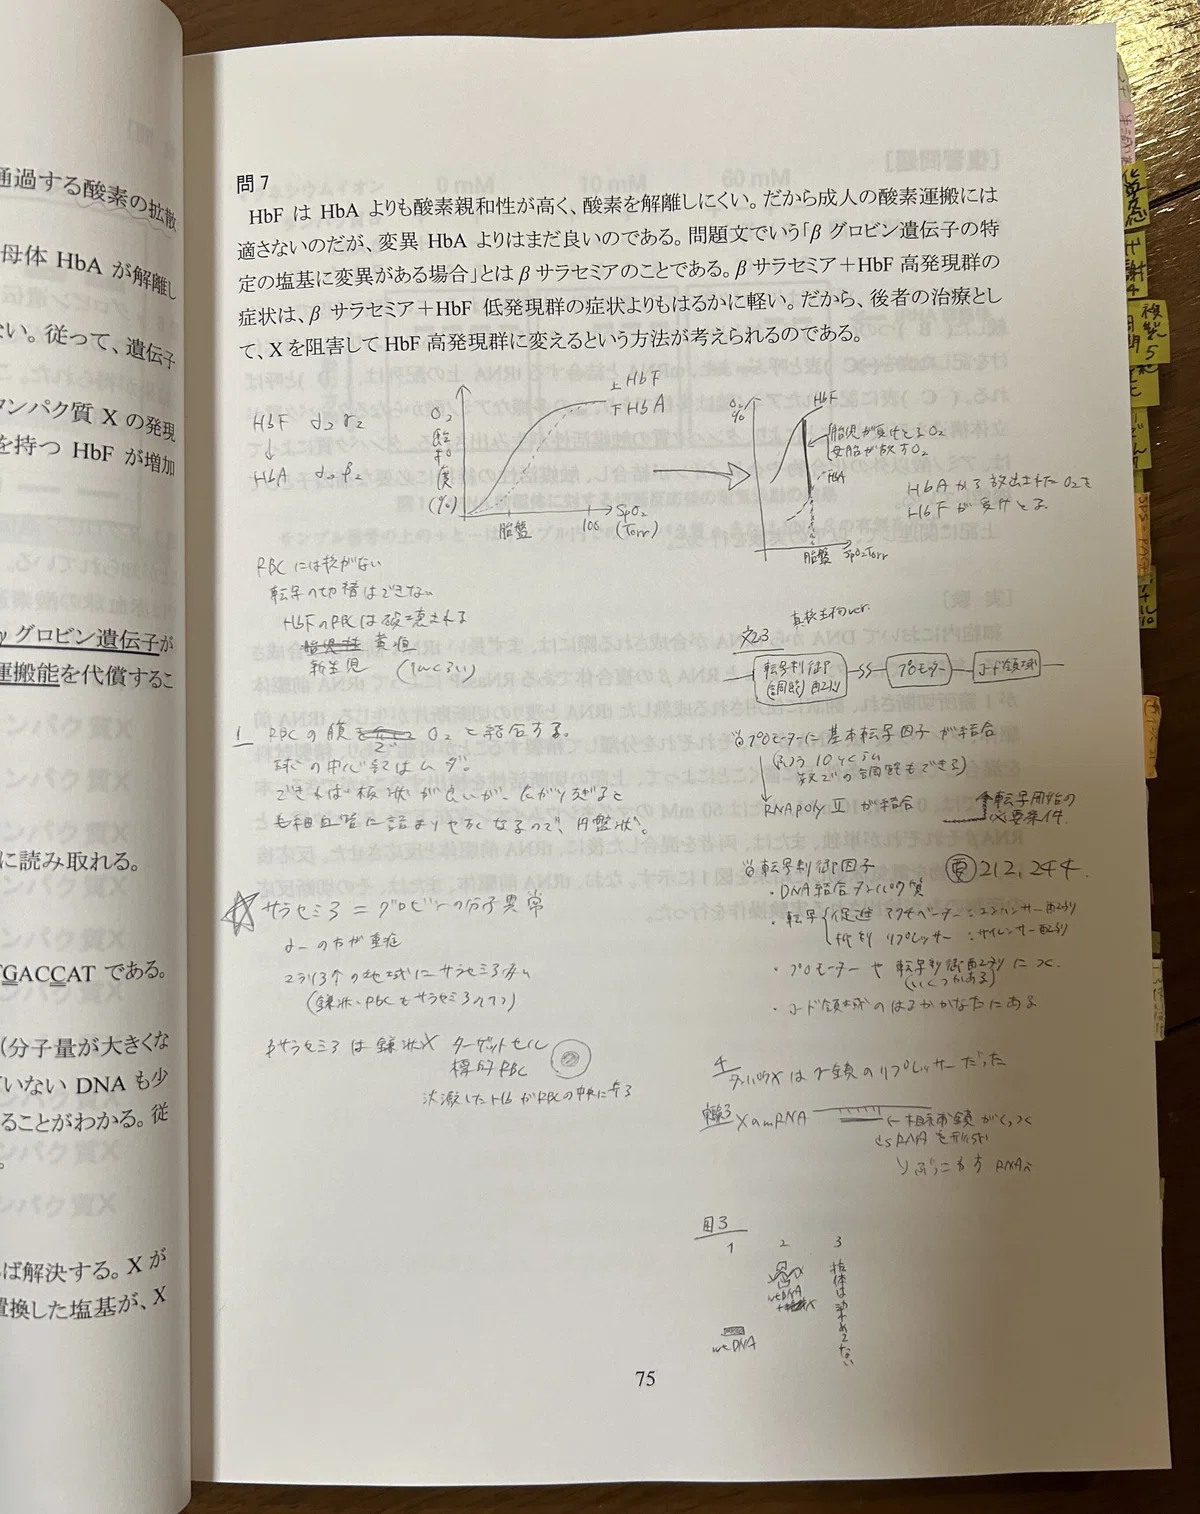 通過する酸素の拡散
母体 HbA が解離し
ない。従って、遺伝子
タンパク質 X の発現
を持つ HbF が増加
γ グロビン遺伝子が
運搬能を代償するこ
に読み取れる。
GACCAT である。
(分子量が大きくな
いない DNA も少
ることがわかる。従
ば解決する。X が
置換した塩基が、X
問 7
HbF は HbA よりも酸素親和性が高く、酸素を解離しにくい。だから成人の酸素運搬には
適さないのだが、変異 HbA よりはまだ良いのである。問題文でいう「β グロビン遺伝子の特
定の塩基に変異がある場合」とは β サラセミアのことである。β サラセミア＋HbF 高発現群の
症状は、β サラセミア＋HbF 低発現群の症状よりもはるかに軽い。だから、後者の治療とし
て、X を阻害して HbF 高発現群に変えるという方法が考えられるのである。
HbF α₂γ₂
↓
HbA α₂β₂
O₂飽和度(%)
HbF
HbA
胎盤
100
SpO₂
(Torr)
O₂%
HbF
胎児が受けとるO₂
母胎が放すO₂
HbA
胎盤 SpO₂Torr
HbAから放出されたO₂を
HbFが受けとる。
RBCには核がない
転写の切替はできない
HbFのRBCは破壊される
新生児黄疸
1 RBCの膜で O₂と結合する。
球の中心部はムダ。
できれば板状が良いが、広がりすぎると
毛細血管に詰まりやすくなるので、円盤状。
☆サラセミア＝グロビンの分子異常
α-の方が重症
マラリアの地域にサラセミア多い
(鎌状RBCもサラセミアの1つ)
βサラセミアは鎌状X ターゲットセル
標的RBC
沈澱したHbがRBCの中央に寄る
文23 真核生物ver.
転写制御(調節)配列
プロモーター
コード領域
プロモーターに基本転写因子が結合
RNApoly Ⅱ が結合
転写開始の
必要条件
転写制御因子 212,244.
・DNA結合タンパク質
・転写 促進 アクチベーター：エンハンサー配列
抑制 リプレッサー：サイレンサー配列
・プロモーターや転写制御配列につく
(いくつかある)
・コード領域のはるかかなたにある
4
タンパクXはγ鎖のリプレッサーだった
実験3 XのmRNA
←相補鎖がくっつく
dsRNAを形成
RNAi
図3
1 2 3
wtDNA
wtDNA
抗体は染めてない
75